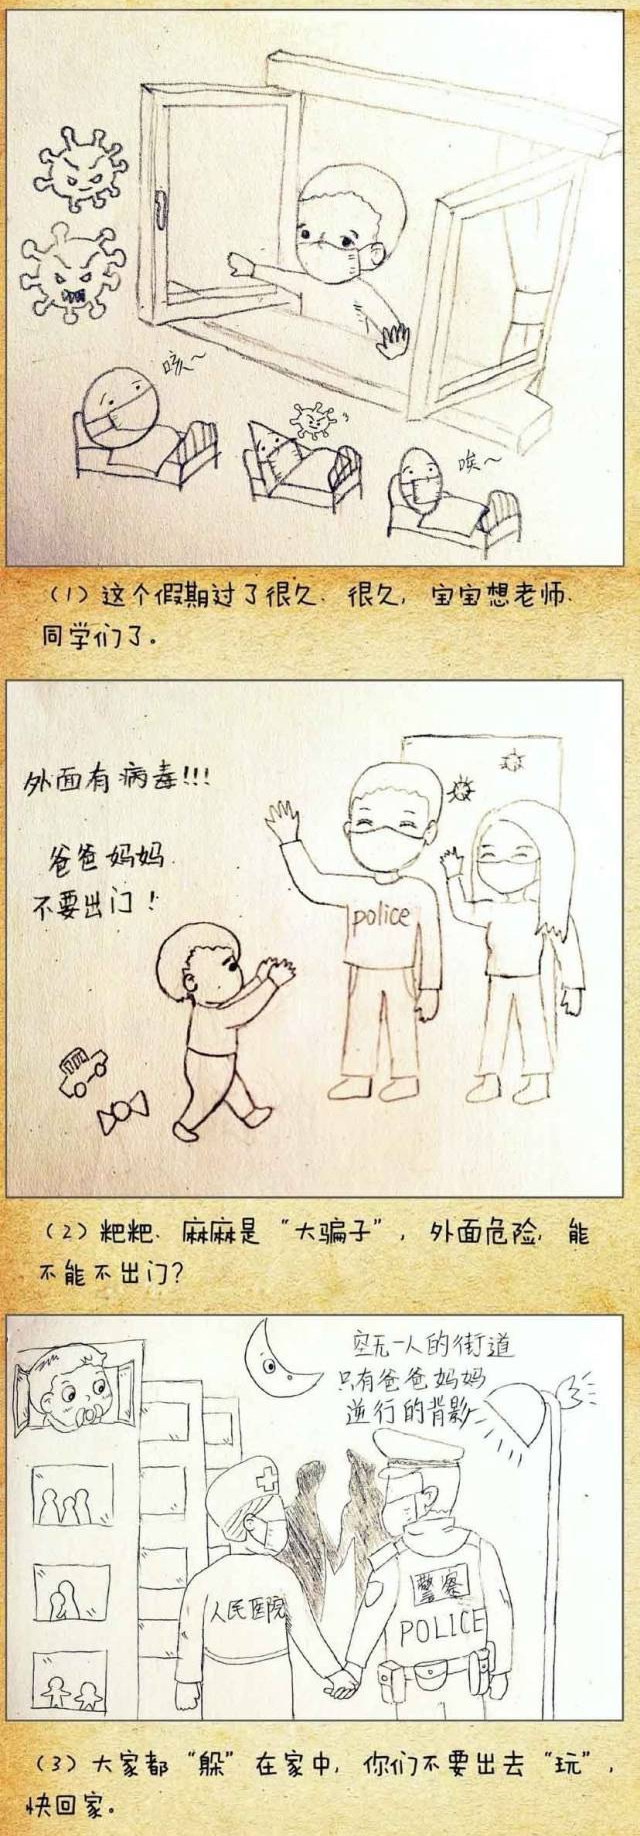 咳~
唉~
(1)这个假期过了很久、很久,宝宝想老师、
同学们了。
外面有病毒!!!
爸爸妈妈
不要出门!
police
(2)粑粑、麻麻是“大骗子”,外面危险,能
不能不出门?
空无一人的街道
只有爸爸妈妈
逆行的背影
人民医院
警察
POLICE
(3)大家都“躲”在家中,你们不要出去“玩”,
快回家。